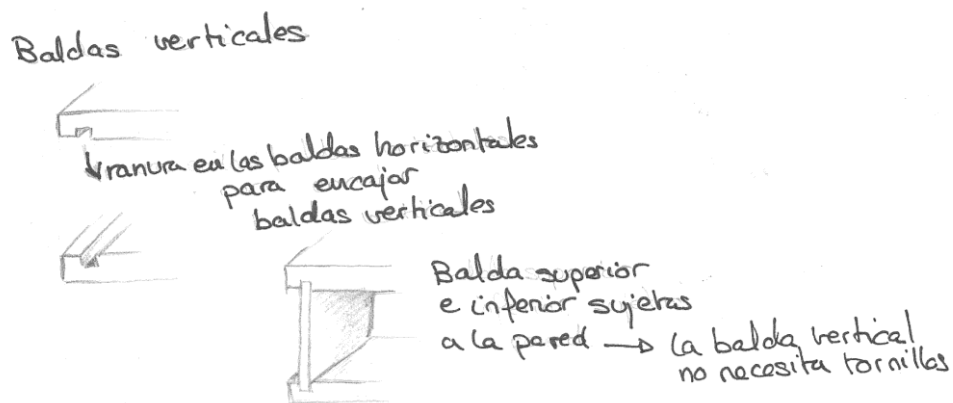 Baldas verticales
ranura en las baldas horizontales
para encajar
baldas verticales
Balda superior
e inferior sujetas
a la pared → la balda vertical
no necesita tornillos